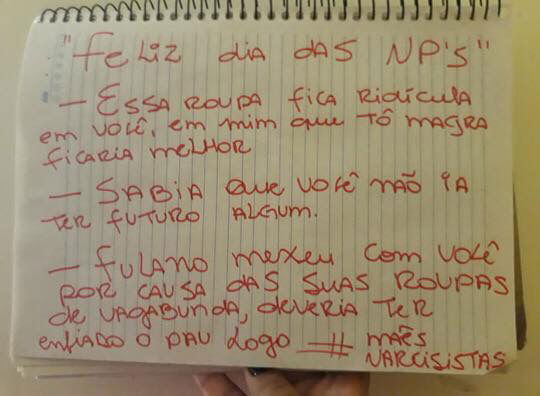 "Feliz dia das NP's"
— Essa roupa fica ridícula
em você, em mim que tô magra
ficaria melhor
— Sabia que você não ia
ter futuro algum.
— Fulano mexeu com você
por causa das suas roupas
de vagabunda, deveria ter
enfiado o pau logo # mães
narcisistas